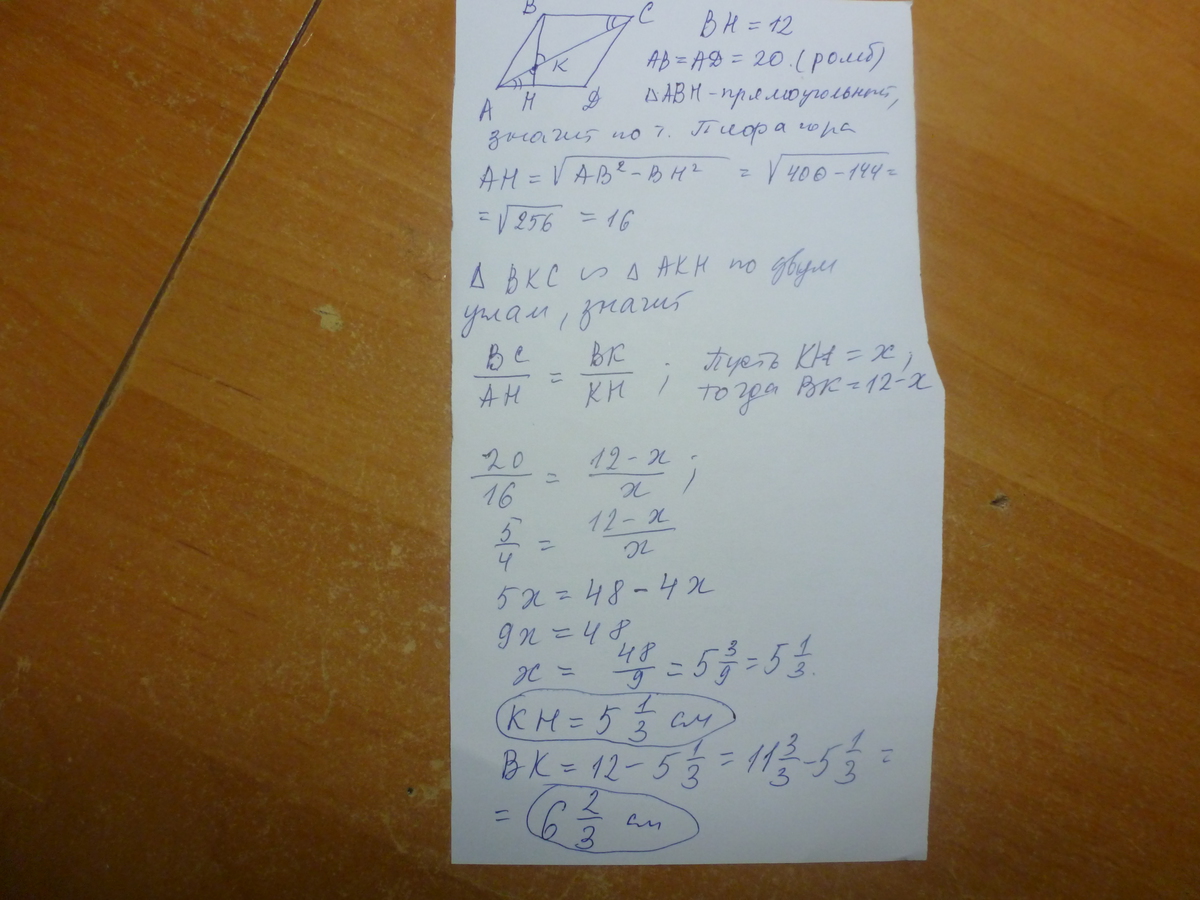 B C BH = 12
K AB = AD = 20. (ромб)
A H D △ABH – прямоугольный,
значит по т. Пифагора
AH = √(AB² – BH²) = √(400 – 144) =
= √256 = 16
△ BKC ∽ △ AKH по двум
углам, значит
BC/AH = BK/KH ; Пусть KH = x,
тогда BK = 12 – x
20/16 = (12 – x)/x ;
5/4 = (12 – x)/x
5x = 48 – 4x
9x = 48
x = 48/9 = 5 3/9 = 5 1/3.
KH = 5 1/3 см
BK = 12 – 5 1/3 = 11 3/3 – 5 1/3 =
= 6 2/3 см